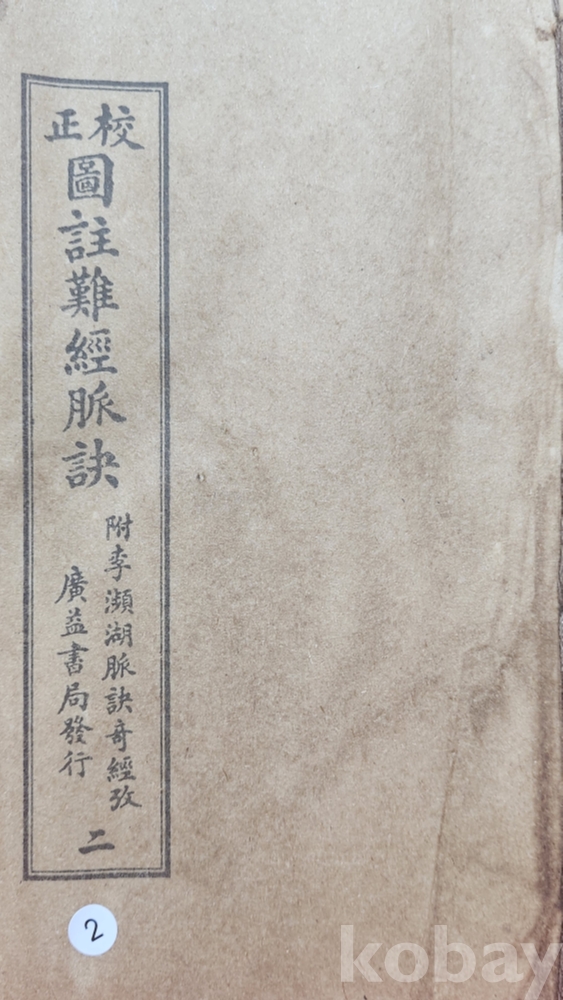 校正
圖註難經脈訣
附李瀕湖脈訣奇經攷
廣益書局發行
二
2
kobay